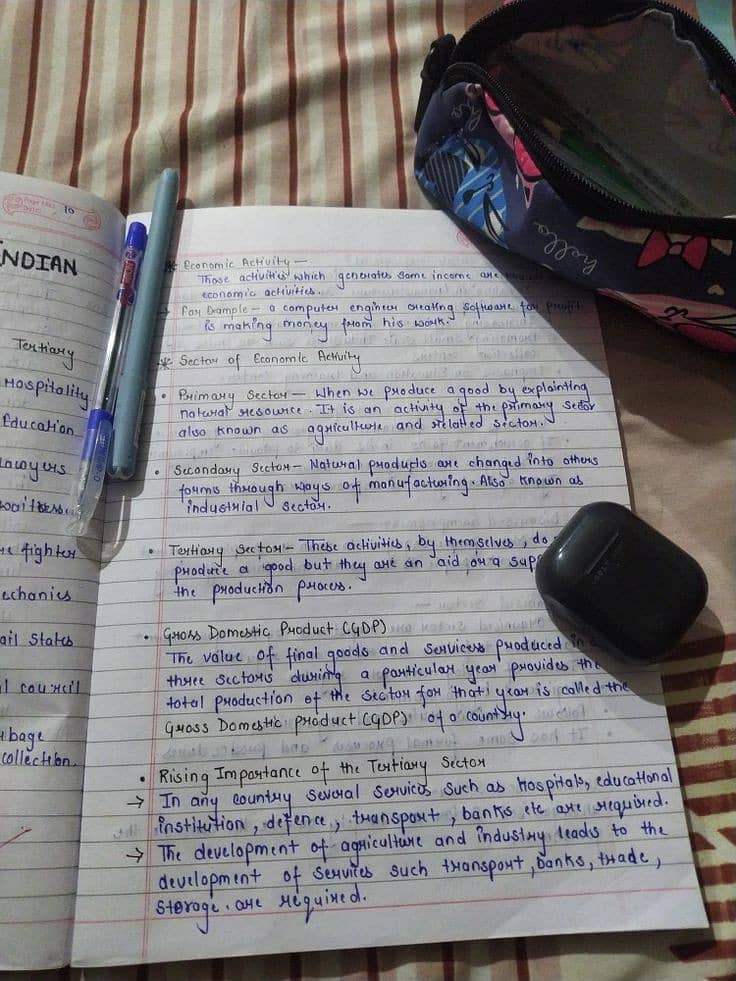 Page No. 10
Date
INDIAN
Tertiary
Hospitality
Education
Lawyers
fighter
echanics
States
council
collection.
* Economic Activity —
Those activities which generates some income are
economic activities.
→ For Example - a computer engineer creating software for profit
is making money from his work.
* Sector of Economic Activity
• Primary Sector — When we produce a good by explainting
natural resource. It is an activity of the primary sector
also known as agriculture and related sector.
• Secondary Sector - Natural products are changed into others
forms through ways of manufacturing. Also known as
industrial sector.
• Tertiary sector - These activities, by themselves, do
produce a good but they are an aid or a
the production process.
• Gross Domestic Product (GDP)
The value of final goods and services produced in
three sectors during a particular year provides the
total production of the sector for that year is called the
Gross Domestic product (GDP) of a country.
• Rising Importance of the Tertiary Sector
→ In any country several services such as hospitals, educational
institution, defence, transport, banks etc are required.
→ The development of agriculture and industry leads to the
development of services such transport, banks, trade,
storage. are required.
hello
hello